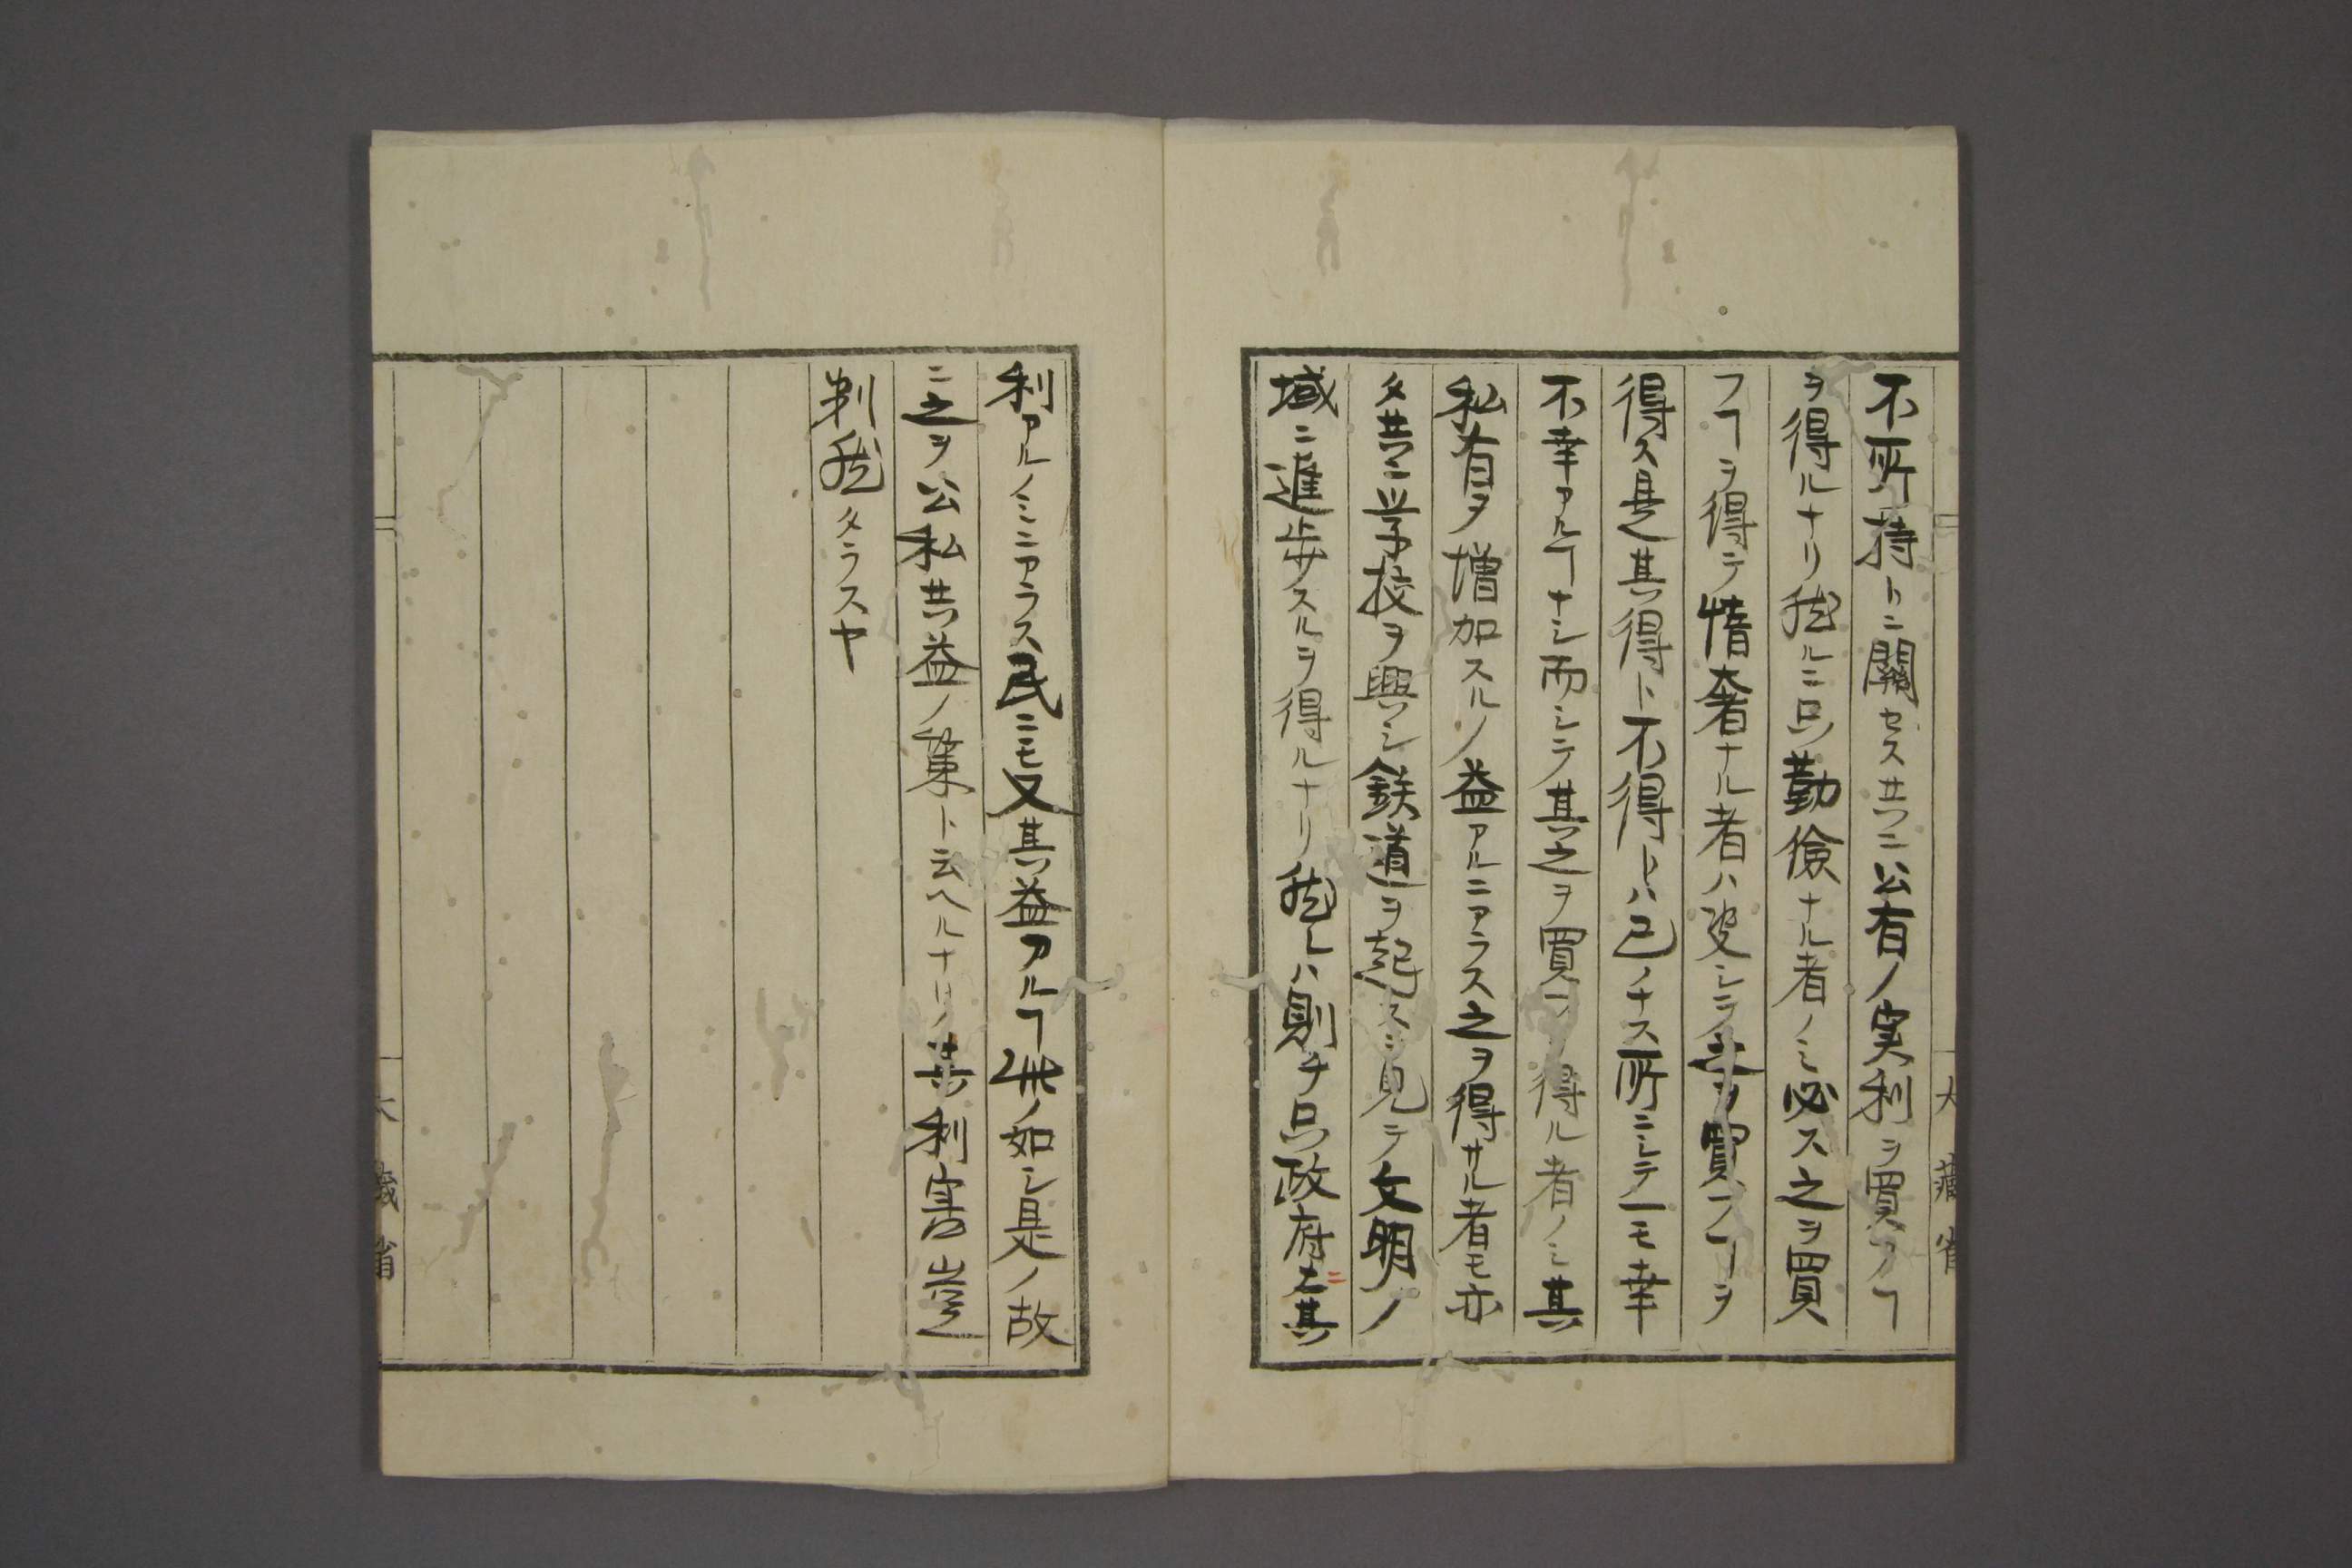 不所持トニ關セス共ニ公有ノ実利ヲ買フヿ
ヲ得ルナリ然ルニ只勤儉ナル者ノミ必ス之ヲ買
フヿヲ得テ惰奢ナル者ハ決シテ之ヲ買フヿヲ
得ス是其得ト不得トハ己ノナス所ニシテ一モ幸
不幸アルヿナシ而シテ其之ヲ買フヲ得ル者ノミ其
私有ヲ増加スルノ益アルニアラス之ヲ得サル者モ亦
タ共ニ学校ヲ興シ鉄道ヲ起スヲ見テ文明ノ
域ニ進歩スルヲ得ルナリ然レハ則チ只政府ニ其
大藏省
利アルノミニアラス民ニモ又其益アルヿ此ノ如シ是ノ故
ニ之ヲ公私共益ノ業ト云ヘルナリ其利害豈
判然タラスヤ
大藏省